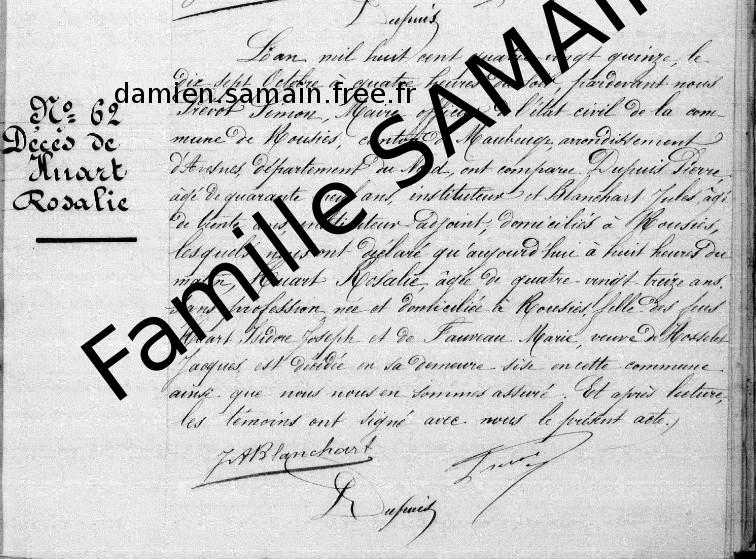 Dupuis
L'an mil huit cent quatre vingt quinze, le
dix sept Octobre à quatre heures du soir, pardevant nous
Prévot Simon, Maire, officier de l'état civil de la com-
mune de Rousies, canton de Maubeuge, arrondissement
d'Avesnes, département du Nord, ont comparu Dupuis Pierre
âgé de quarante ans, instituteur et Blanchart Jules, âgé
de trente ans, instituteur adjoint, domiciliés à Rousies,
lesquels nous ont déclaré qu'aujourd'hui à huit heures du
matin, Huart Rosalie, âgée de quatre-vingt treize ans,
sans profession, née et domiciliée à Rousies, fille des feus
Huart Isidore Joseph et de Fauveau Marie, veuve de
Jacques, est décédée en sa demeure sise en cette commune
ainsi que nous nous en sommes assuré. Et après lecture,
les témoins ont signé avec nous le présent acte,
JABlanchart
Dupuis
Nº 62
Décès de
Huart
Rosalie
damien.samain.free.fr
Famille SAMAIN